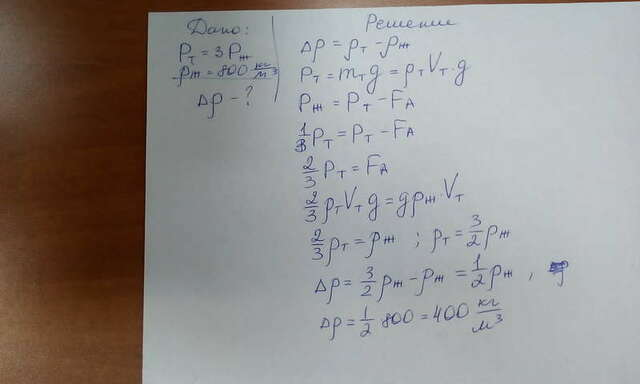 Дано:
Pт = 3 Pж
ρж = 800 кг/м³
Δρ - ?
Решение
Δρ = ρт - ρж
Pт = mт g = ρт Vт · g
Pж = Pт - FA
1/3 Pт = Pт - FA
2/3 Pт = FA
2/3 ρт Vт g = g ρж · Vт
2/3 ρт = ρж ; ρт = 3/2 ρж
Δρ = 3/2 ρж - ρж = 1/2 ρж ,
Δρ = 1/2 800 = 400 кг/м³